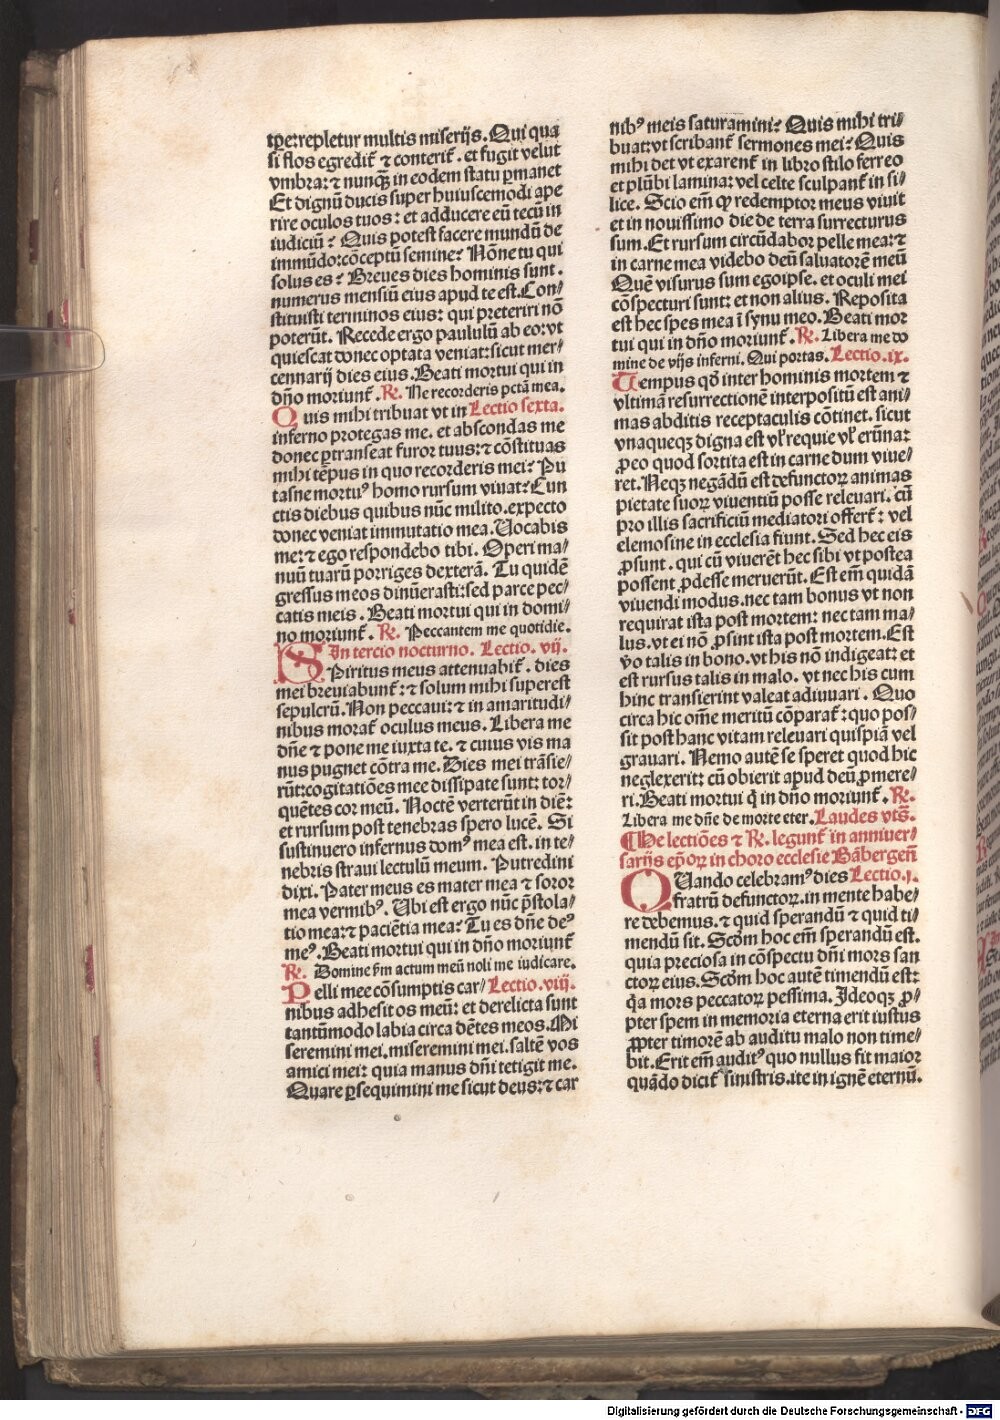 tꝑe: repletur multis miserijs. Qui qua
si flos egredit᷑ ⁊ conterit᷑. et fugit velut
vmbra: ⁊ nunqꝫ̄ in eodem statu ꝑmanet
Et dignū ducis super huiuscemodi ape
rire oculos tuos: et adducere eū tecū in
iudiciū? Quis potest facere mundū de
immūdo: cōceptū semine? Nōne tu qui
solus es? Breues dies hominis sunt.
numerus mensiū eius apud te est. Con⸗
stituisti terminos eius: qui preteriri nō
poterūt. Recede ergo paululū ab eo: vt
quiescat donec optata veniat: sicut mer⸗
cennarij dies eius. Beati mortui qui in
dn̄o moriunt᷑. ℟. Ne recorderis pctā mea.
Quis mihi tribuat vt in Lectio sexta.
inferno protegas me. et abscondas me
donec ꝑtranseat furor tuus: ⁊ cōstituas
mihi tēpus in quo recorderis mei? Pu
tasne mortuꝰ homo rursum viuat? Cun
ctis diebus quibus nūc milito. expecto
donec veniat immutatio mea. Vocabis
me: ⁊ ego respondebo tibi. Operi ma⸗
nuū tuarū porriges dexterā. Tu quidē
gressus meos dinūerasti: sed parce pec⸗
catis meis. Beati mortui qui in domi⸗
no moriunt᷑. ℟. Peccantem me quotidie.
In tercio nocturno. Lectio. vij.
Spiritus meus attenuabit᷑. dies
mei breuiabunt᷑: ⁊ solum mihi superest
sepulcrū. Non peccaui: ⁊ in amaritudi⸗
nibus morat᷑ oculus meus. Libera me
dn̄e ⁊ pone me iuxta te. ⁊ cuius vis ma
nus pugnet cōtra me. Dies mei trāsie⸗
rūt: cogitatiōes mee dissipate sunt: tor⸗
quētes cor meū. Noctē verterūt in diē:
et rursum post tenebras spero lucē. Si
sustinuero infernus domꝰ mea est. in te⸗
nebris straui lectulū meum. Putredini
dixi. Pater meus es mater mea ⁊ soror
mea vermibꝰ. Ubi est ergo nūc p̄stola⸗
tio mea: ⁊ paciētia mea? Tu es dn̄e deꝰ
meꝰ. Beati mortui qui in dn̄o moriunt᷑
℟. Domine ẜm actum meū noli me iudicare.
Pelli mee cōsumptis car⸗ Lectio. viij.
nibus adhesit os meū: et derelicta sunt
tantūmodo labia circa dētes meos. Mi
seremini mei. miseremini mei. saltē vos
amici mei: quia manus dn̄i tetigit me.
Quare ꝑsequimini me sicut deus: ⁊ car
nibꝰ meis saturamini? Quis mihi tri⸗
buat: vt scribant᷑ sermones mei? Quis
mihi det vt exarent᷑ in libro stilo ferreo
et plūbi lamina: vel celte sculpant᷑ in si⸗
lice. Scio em̄ ꝙ redemptor meus viuit
et in nouissimo die de terra surrecturus
sum. Et rursum circūdabor pelle mea: ⁊
in carne mea videbo deū saluatorē meū
Quē visurus sum ego ipse. et oculi mei
cōspecturi sunt: et non alius. Reposita
est hec spes mea ī synu meo. Beati mor
tui qui in dn̄o moriunt᷑. ℟. Libera me do
mine de vijs inferni. Qui portas. Lectio. ix.
Tempus qd̄ inter hominis mortem ⁊
vltimā resurrectionē interpositū est ani⸗
mas abditis receptaculis cōtinet. sicut
vnaqueqꝫ digna est vl̓ requie vl̓ erūna:
ꝓ eo quod sortita est in carne dum viue⸗
ret. Neqꝫ negādū est defunctoꝝ animas
pietate suoꝝ viuentiū posse releuari. cū
pro illis sacrificiū mediatori offert᷑: vel
elemosine in ecclesia fiunt. Sed hec eis
ꝓsunt. qui cū viuerēt hec sibi vt postea
possent ꝓdesse meruerūt. Est em̄ quidā
viuendi modus. nec tam bonus vt non
requirat ista post mortem: nec tam ma⸗
lus. vt ei nō ꝓsint ista post mortem. Est
v̓o talis in bono. vt his nō indigeat: et
est rursus talis in malo. vt nec his cum
hinc transierint valeat adiuuari. Quo
circa hic om̄e meritū cōparat᷑: quo pos⸗
sit post hanc vitam releuari quispiā vel
grauari. Nemo autē se speret quod hic
neglexerit: cū obierit apud deū ꝓmere⸗
ri. Beati mortui q̄ in dn̄o moriunt᷑. ℟.
Libera me dn̄e de morte eter. Laudes vts̄.
¶ He lectiōes ⁊ ℟. legunt᷑ in anniuer⸗
sarijs ep̄oꝝ in choro ecclesie Bābergen̄
Quando celebramꝰ dies Lectio. j.
fratrū defunctoꝝ. in mente habe⸗
re debemus. ⁊ quid sperandū ⁊ quid ti⸗
mendū sit. Scd̓m hoc em̄ sperandū est.
quia preciosa in cōspectu dn̄i mors san
ctoꝝ eius. Scd̓m hoc autē timendū est:
q̄a mors peccatoꝝ pessima. Ideoqꝫ ꝓ⸗
pter spem in memoria eterna erit iustus
ꝓpter timorē ab auditu malo non time⸗
bit. Erit em̄ auditꝰ quo nullus fit maior
quādo dicit᷑ sinistris. ite in ignē eternū.
Digitalisierung gefördert durch die Deutsche Forschungsgemeinschaft - DFG